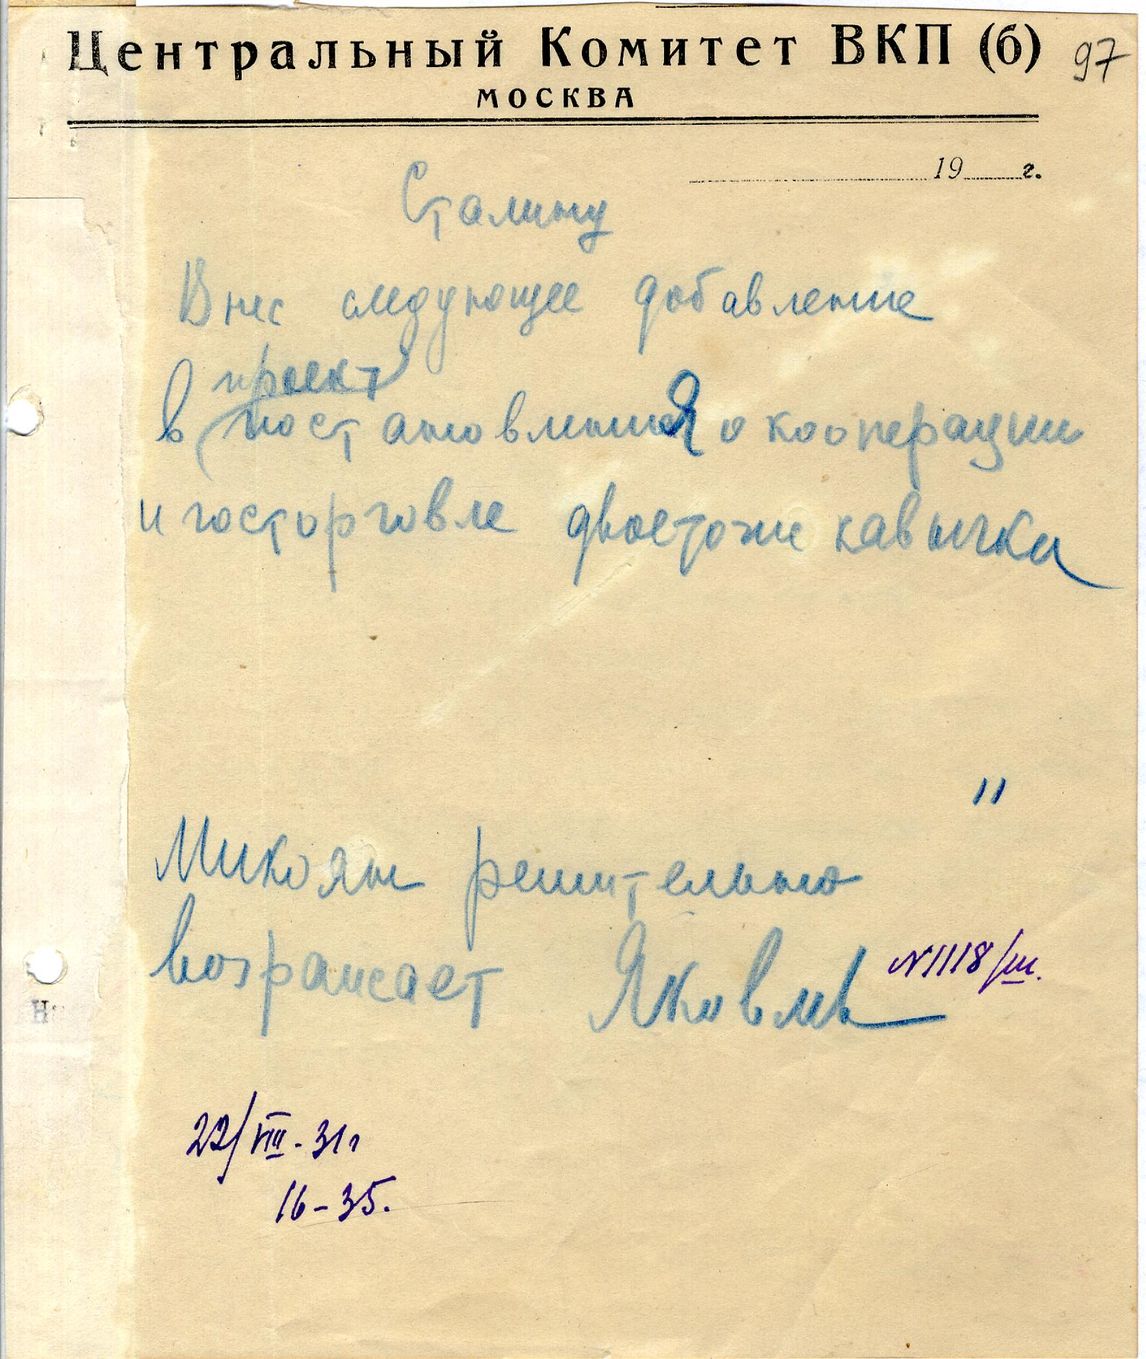 Центральный Комитет ВКП (б) 97
МОСКВА
19 г.
Сталину
Внес следующее добавление
проект
в постановления о кооперации
и госторговле двоеточие кавычки
"
Микоян решительно
возражает Яковлев
N1118/ш.
22/VIII-31г
16-35.